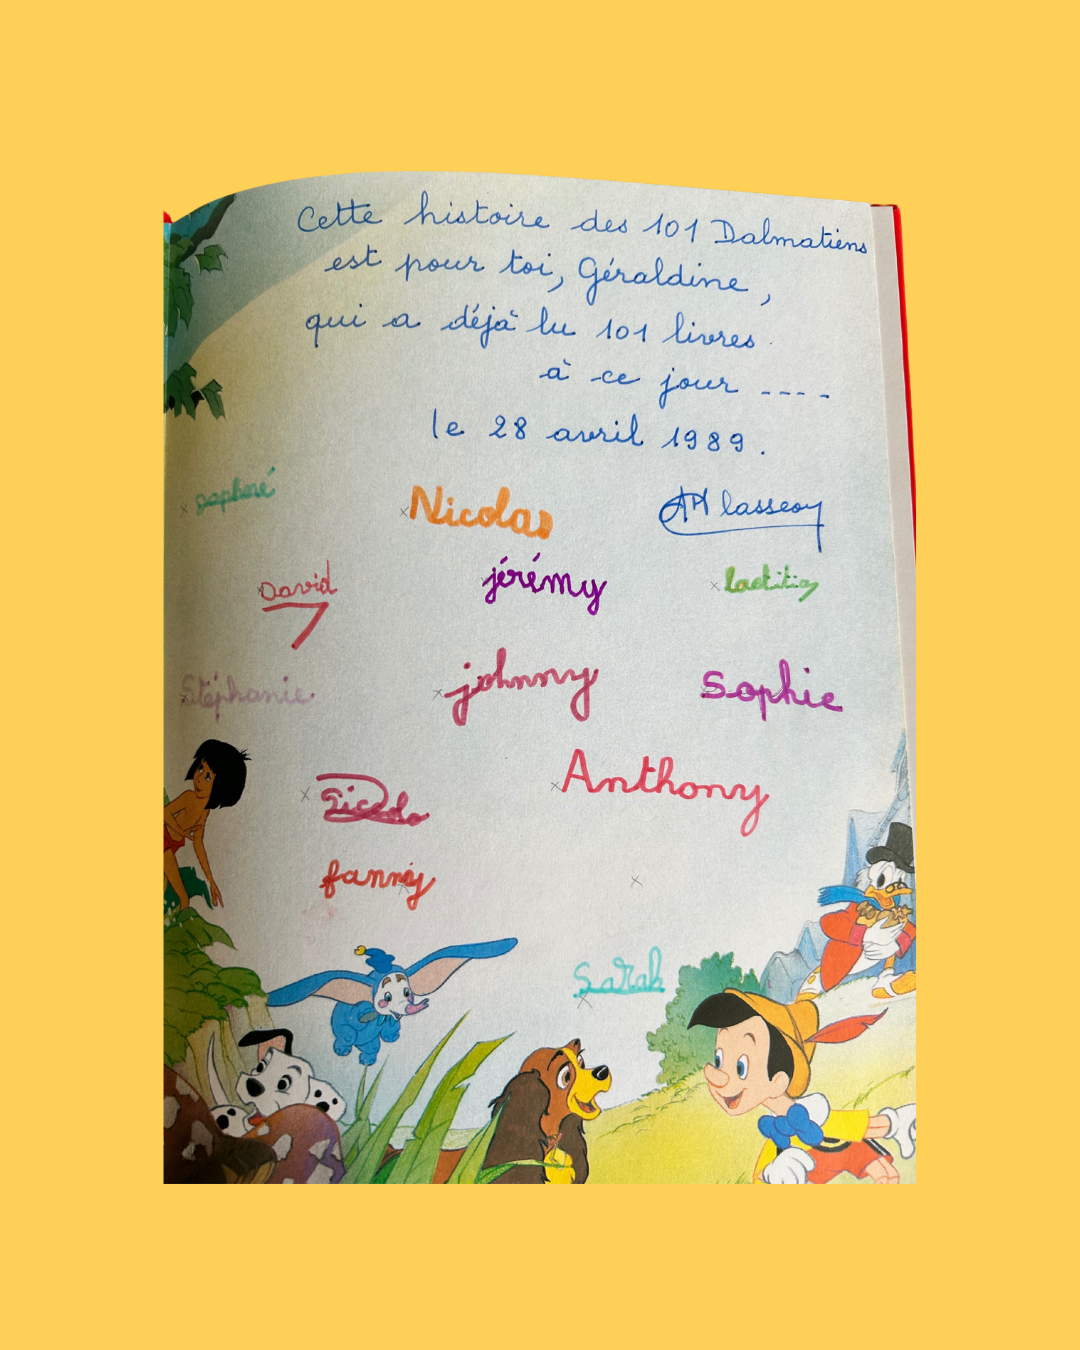 Cette histoire des 101 Dalmatiens
est pour toi, Géraldine,
qui a déjà lu 101 livres
à ce jour ----
le 28 avril 1989.
Nicolas
David
jérémy
laetitia
Stéphanie
johnny
Sophie
Anthony
fanny
Sarah